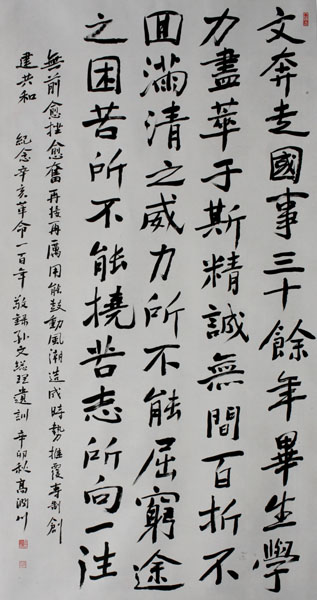 文奔走國事三十餘年畢生學
力盡萃于斯精誠無間百折不
回滿清之威力所不能屈窮途
之困苦所不能撓吾志所向一往
無前愈挫愈奮再接再厲用能鼓動風潮造成時勢推覆專制創
建共和 紀念辛亥革命一百年 敬錄孫文總理遺訓 辛卯秋 高潤川